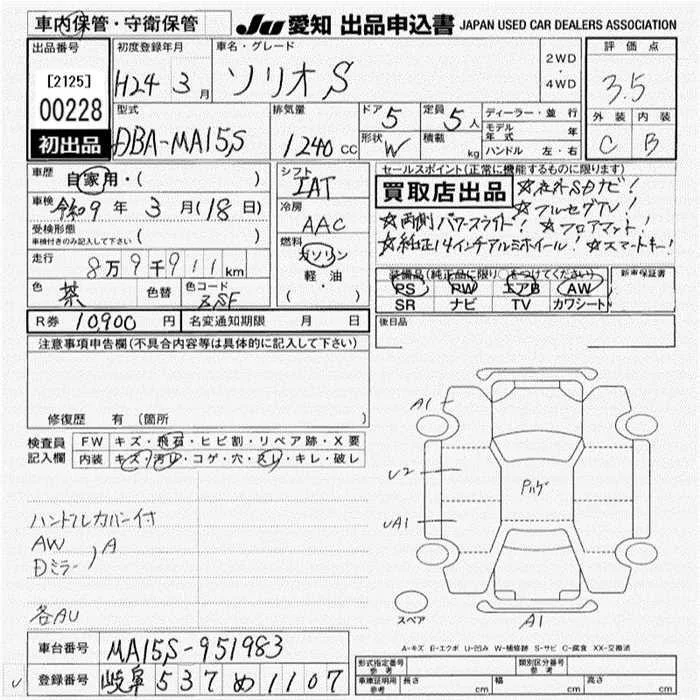 車内保管・守衛保管
JU 愛知 出品申込書 JAPAN USED CAR DEALERS ASSOCIATION
出品番号 初度登録年月 車名・グレード 評価点
[2125] H24 3月 ソリオ S 2WD・4WD 3.5
00228 型式 排気量 ドア 5 定員 5人 ディーラー・並行 外装 内装
モデル年式 年
初出品 DBA-MA15S 1240 cc 形状 W 積載 kg ハンドル 左・右 C B
車歴 自家用・( ) シフト IAT セールスポイント(正常に機能するものに限ります)
買取店出品 ☆社外SDナビ!
車検 令和9年 3月(18日) 冷房 AAC ☆フルセグTV!
受検形態 ( ) ☆両側パワースライド! ☆フロアマット!
車検付きのみ記入して下さい
燃料 ガソリン ☆純正14インチアルミホイール! ☆スマートキー!
走行 8万9千911km 軽・油 装備品(純正品に限り○をつけてください) 新車保証書
・( ) PS PW エアB AW
色 茶 色替 色コード ZSF SR ナビ TV カワシート
R券 10,900 円 名変通知期限 月 日 後日品
注意事項申告欄(不具合内容等は具体的に記入して下さい)
修復歴 有 (箇所 )
検査員 FW キズ・飛石・ヒビ割・リペア跡・X要
記入欄 内装 キズ・汚レ・コゲ・穴・スレ・キレ・破レ
A1
U2
Pハゲ
UA1
ハンドルカバー付
AW
A
Dミラー
各AU
スペア
A1
A-キズ E-エクボ U-凹み W-補修跡 S-サビ C-腐食 XX-交換済
車台番号 MA15S-951983
型式指定番号 参考 類別区分番号 参考
登録番号 岐阜 537 め 1107
車庫証明用 参考 長さ cm 幅 cm 高さ cm